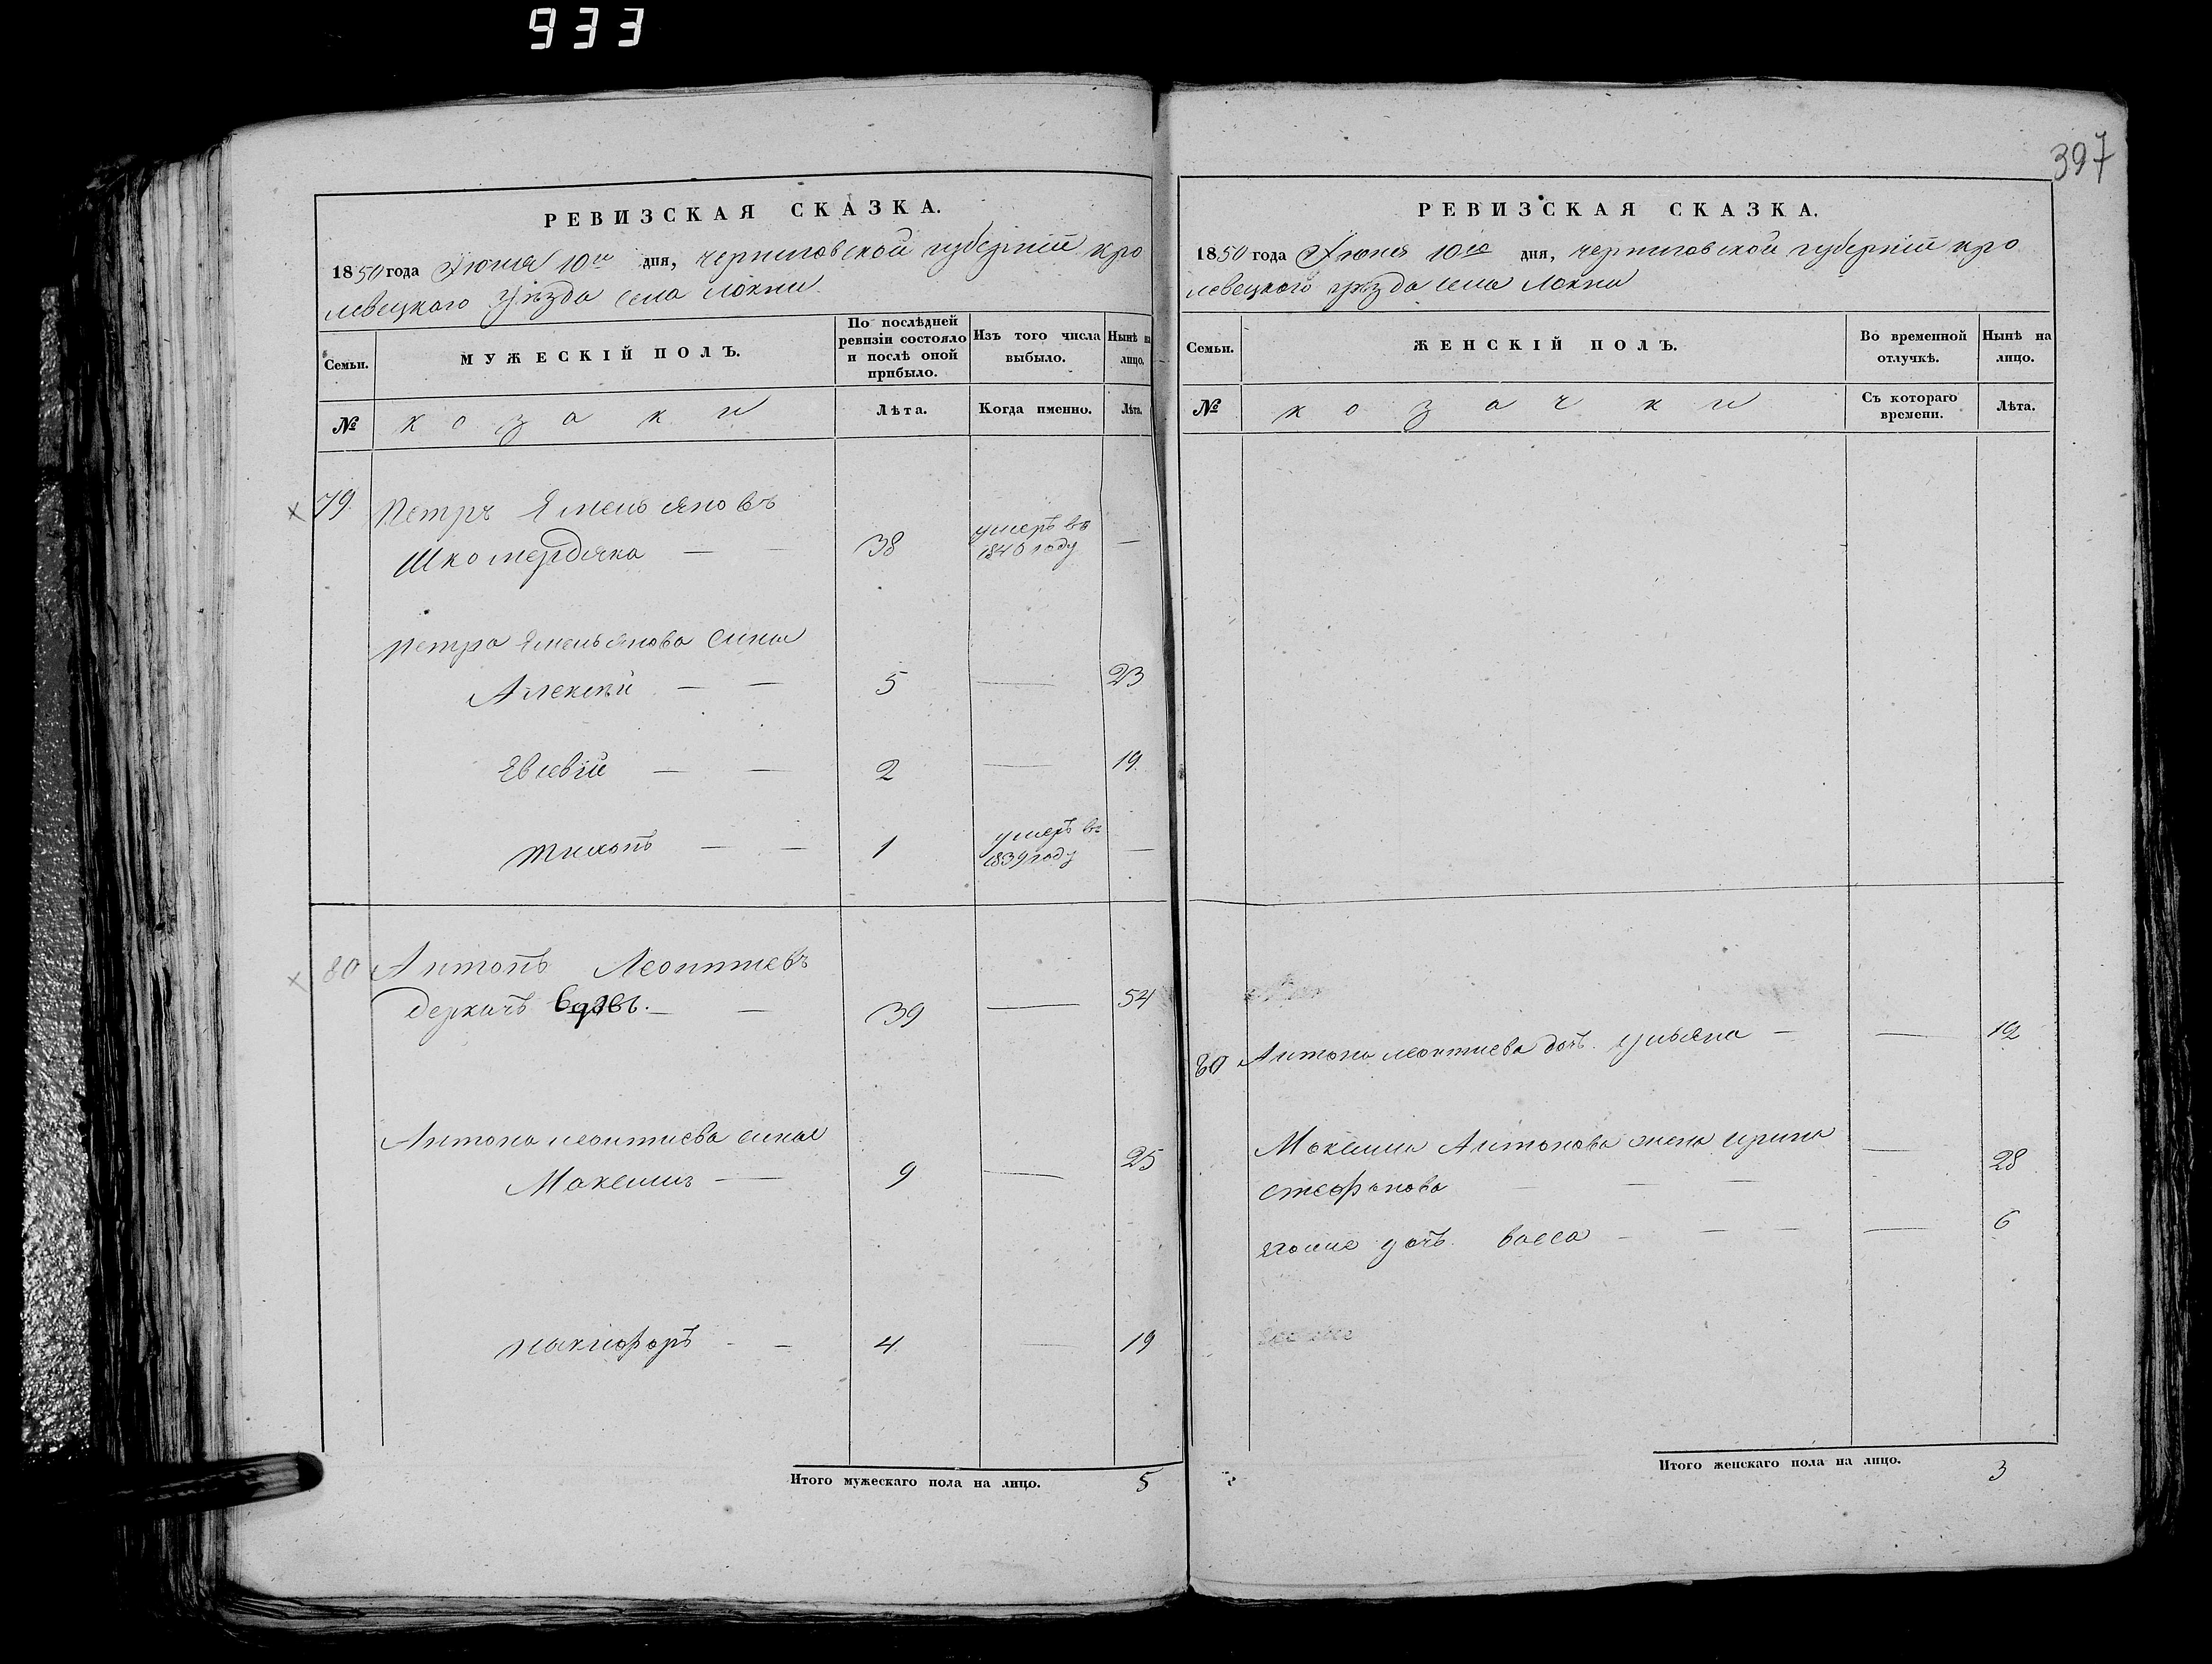 933
397
РЕВИЗСКАЯ СКАЗКА.
1850 года Июня 10го дня, черниговской губерніи кро
левецкого уѣзда села Локни
Семьи.
МУЖЕСКІЙ ПОЛЪ.
По послѣдней ревизіи состояло и послѣ оной прибыло.
Изъ того числа выбыло.
Нынѣ на лицо.
№
козаки
Лѣта.
Когда именно.
Лѣта.
79 Петръ Емельяновъ
38 умеръ въ 1840 году —
Петра Емельянова сины
Алексѣй — — 5 — 23
Евсевій — — 2 — 19
Тихонъ — — 1 умеръ въ 1839 году —
80 Антонъ Леонтиевъ
Деркачъ вдовъ. — — 39 — 54
Антона леонтиева сины
Максимъ — 9 — 25
Никифоръ — — 4 — 19
Итого мужескаго пола на лицо. 5
РЕВИЗСКАЯ СКАЗКА.
1850 года Июня 10го дня, черниговской губерніи кро
левецкого уѣзда села Локни
Семьи.
ЖЕНСКІЙ ПОЛЪ.
Во временной отлучкѣ.
Нынѣ на лицо.
№
козачки
Съ котораго времени.
Лѣта.
80 Антона леонтиева дочь ульяна — — 12
Максима Антонова жена ирина — 28
стефанова — — —
дочь васса — — — — 6
Итого женскаго пола на лицо. 3